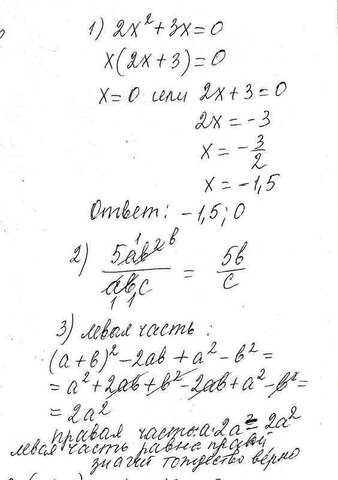 1) 2x² + 3x = 0
x(2x + 3) = 0
x = 0 или 2x + 3 = 0
2x = -3
x = -3/2
x = -1,5
Ответ: -1,5; 0
2) 5ab²/abc = 5b/c
3) левая часть:
(a+b)² - 2ab + a² - b² =
= a² + 2ab + b² - 2ab + a² - b² =
= 2a²
правая часть: a·2a = 2a²
левая часть равна правой
значит тождество верно